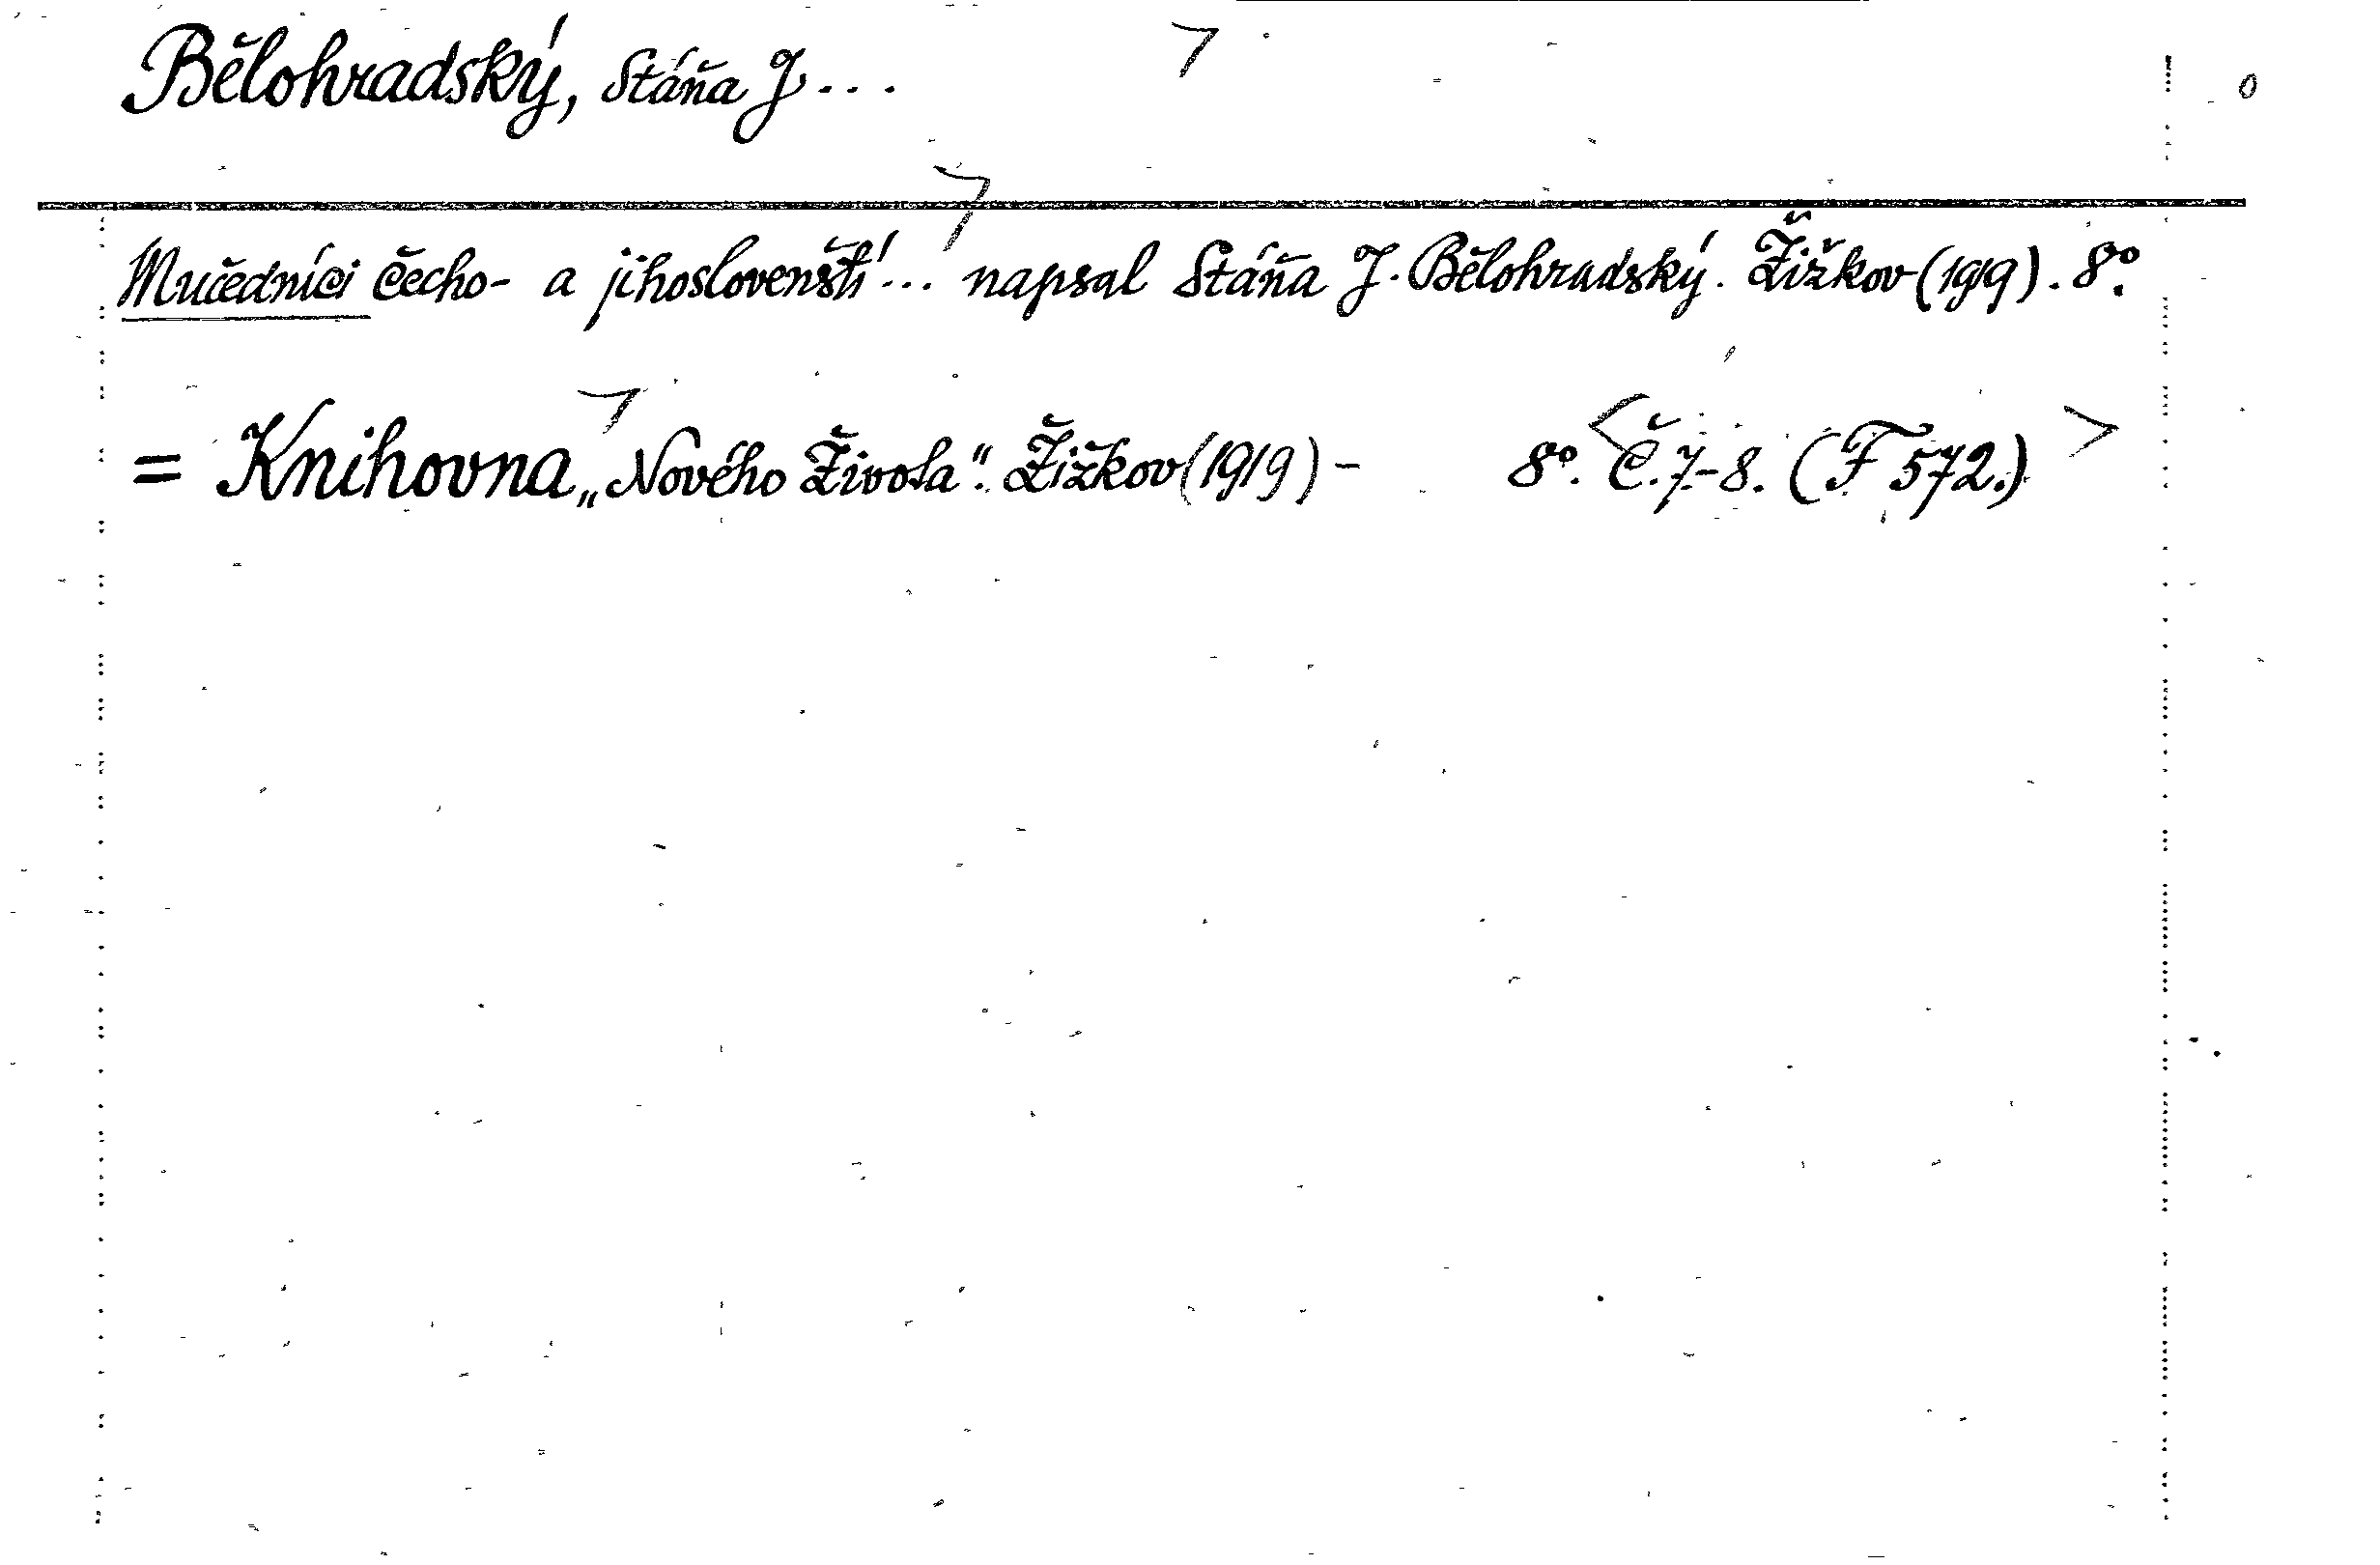 Bělohradský, Stáňa J...
Mučedníci čecho- a jihoslovenští... napsal Stáňa J. Bělohradský. Žižkov (1919). 8°.
= Knihovna „Nového Života“. Žižkov (1919) - 8°. <Č. 7.-8. (F 572.)>